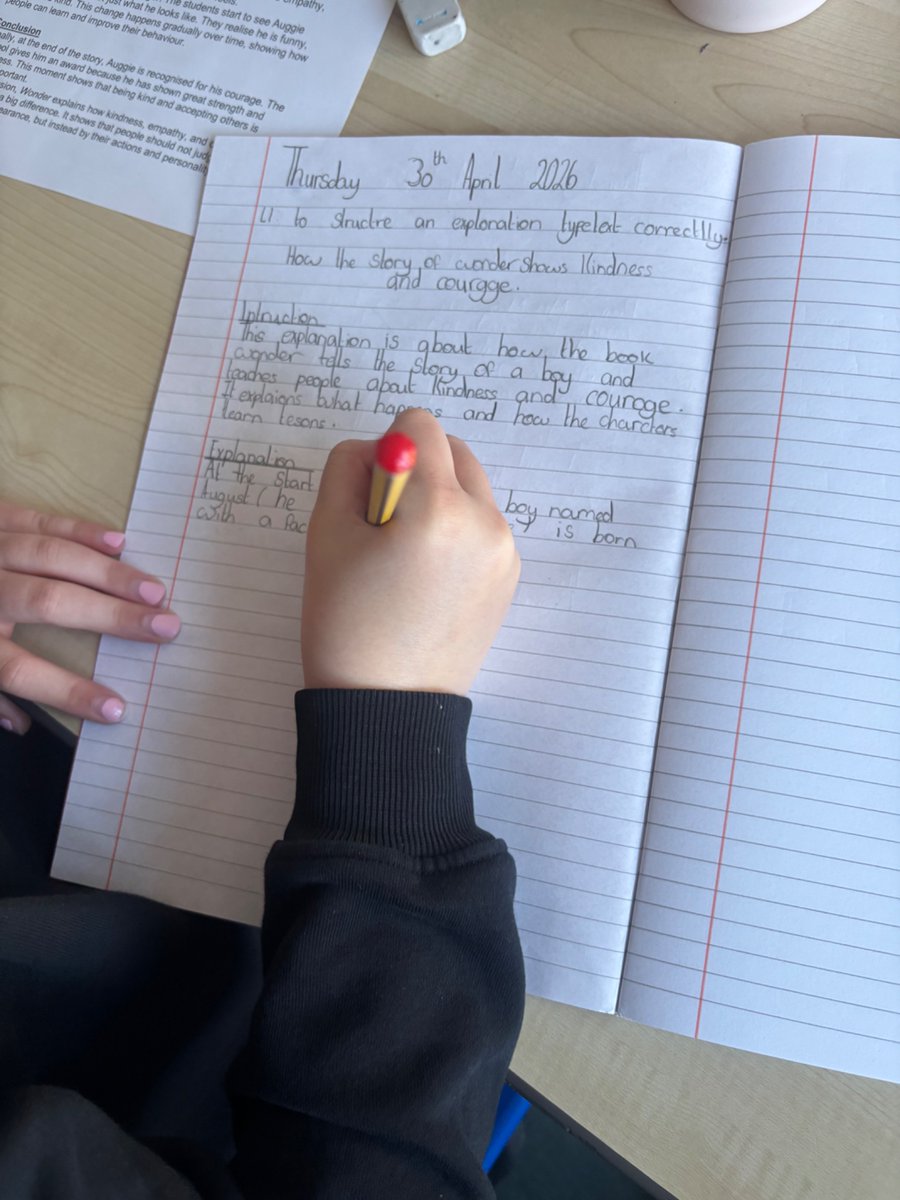 empathy,
The students start to see Auggie
just what he looks like. They realise he is funny,
kind. This change happens gradually over time, showing how
people can learn and improve their behaviour.
Conclusion
at the end of the story, Auggie is recognised for his courage. The
gives him an award because he has shown great strength and
This moment shows that being kind and accepting others is
Wonder explains how kindness, empathy, and
a big difference. It shows that people should not
but instead by their actions and
Thursday 30th April 2026
LI to structre an explonation typelext correctlly.
How the story of wonder shows Kindness
and couragge.
Intruction
This explanation is about how the book
wonder tells the story of a boy and
teaches people about Kindness and courage.
It explaions what happens and how the charctors
learn lesons.
Explanation
At the start
boy named
August ( he
with a
is born